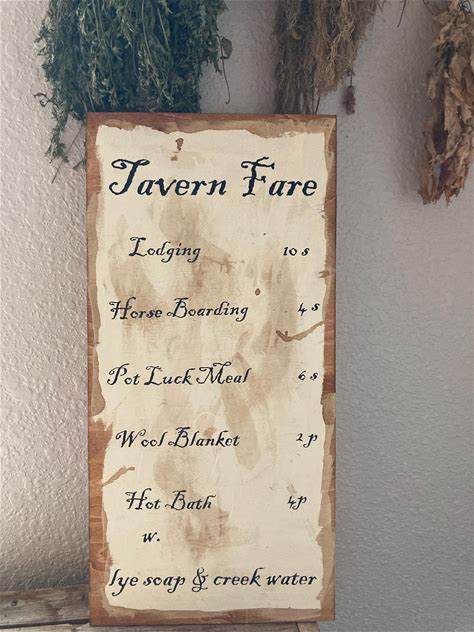 Tavern Fare
Lodging 10 s
Horse Boarding 4 s
Pot Luck Meal 6 s
Wool Blanket 2 p
Hot Bath 4p
w.
lye soap & creek water